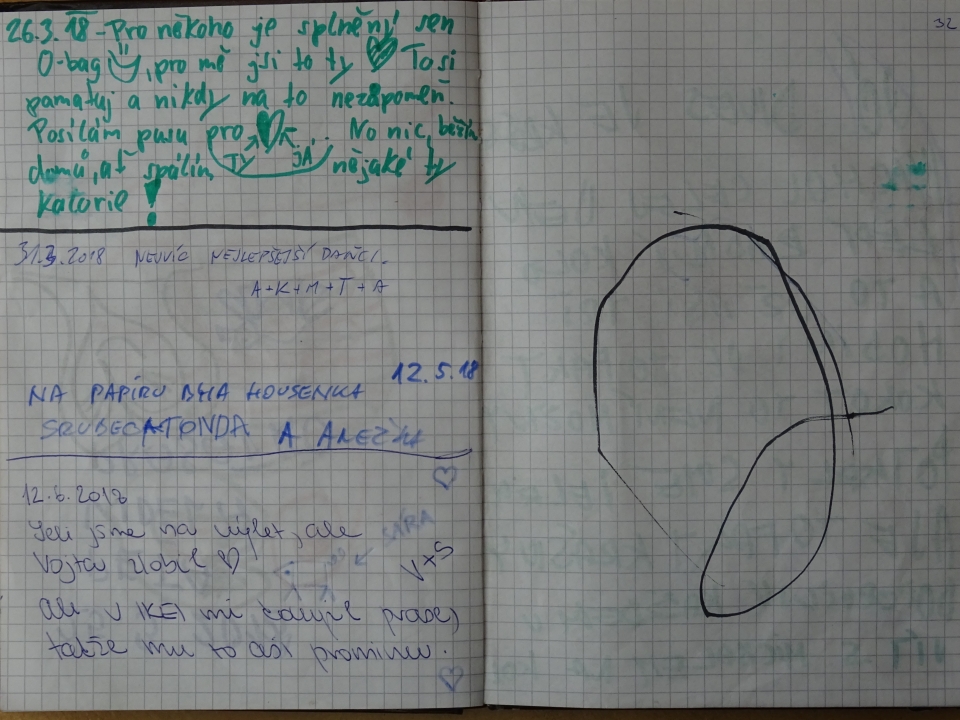 26.3.18 - Pro někoho je splněný sen
O-bag, pro mě jsi to ty Tosi
pamatuj a nikdy na to nezapomeň.
Posílám pusu pro ... No nic, běžím
TY JÁ
domů, ať spálím nějaké ty
kalorie!
31.3.2018 NEJVÍC NEJLEPŠEJŠÍ DANČI.
A+K+M+T+A
12.5.18
NA PAPÍRU BYLA HOUSENKA
A
12.6.2018
Jeli jsme na výlet, ale
SÁRA
Vojta zlobil
V+S
ale v IKEI mi koupil prase,
takže mu to asi prominu.
32